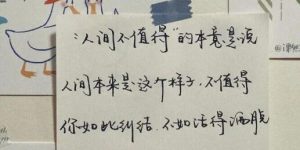 “人间不值得”的本意是说
人间本来是这个样子，不值得
你如此纠结，不如活得洒脱